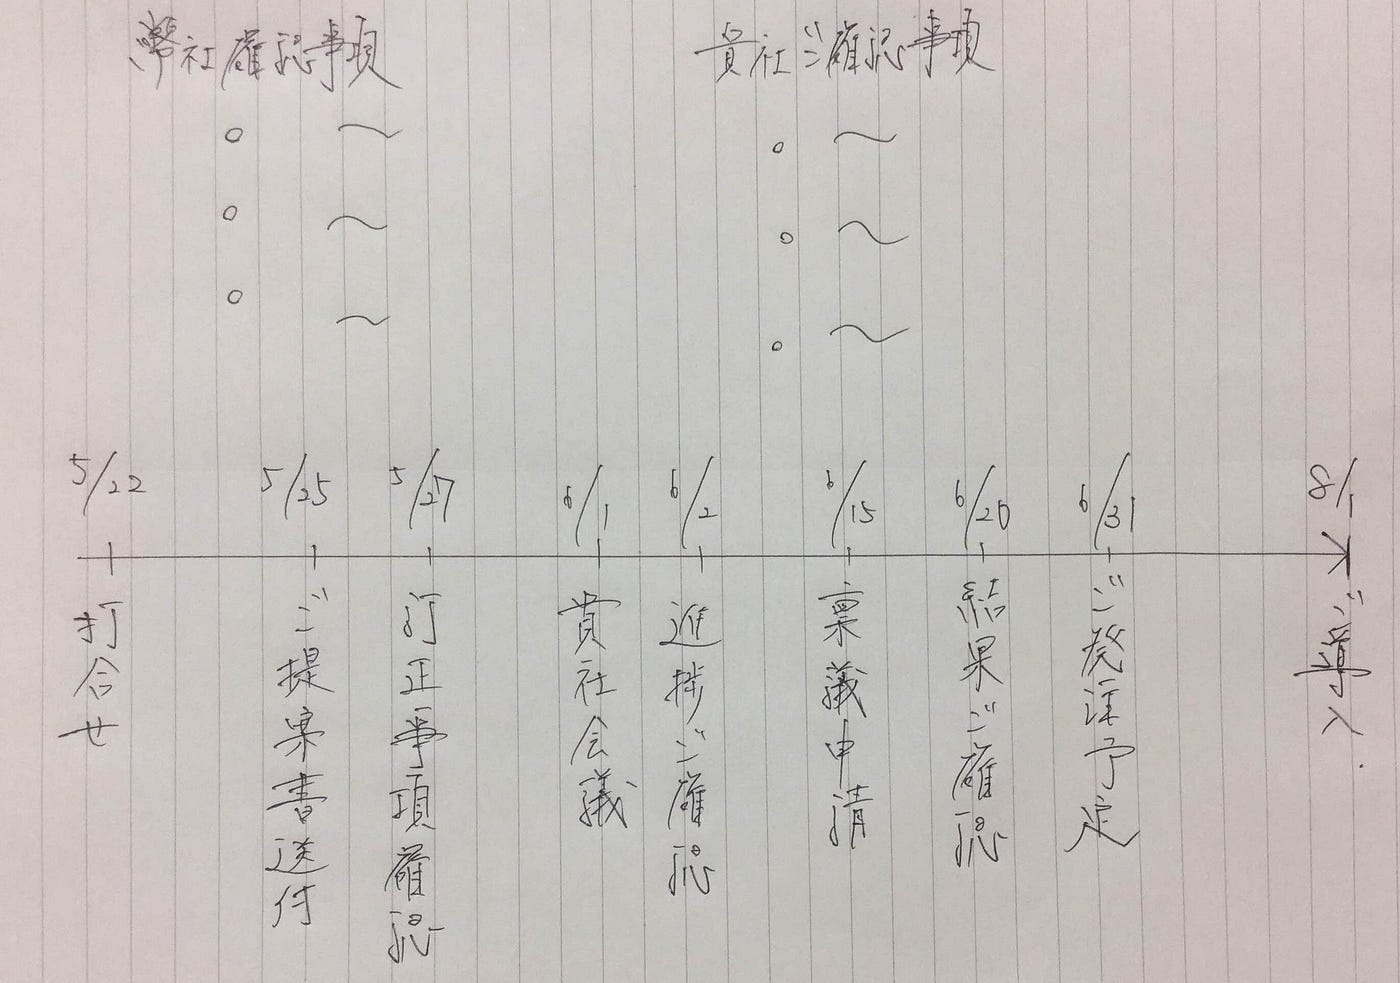 弊社確認事項
。 〜
。 〜
。 〜
貴社ご確認事項
。 〜
。 〜
。 〜
5/22
打合せ
5/25
ご提案書送付
5/27
訂正事項確認
6/1
貴社会議
6/2
進捗ご確認
6/15
稟議申請
6/20
結果ご確認
6/31
ご発注予定
8/1
ご導入